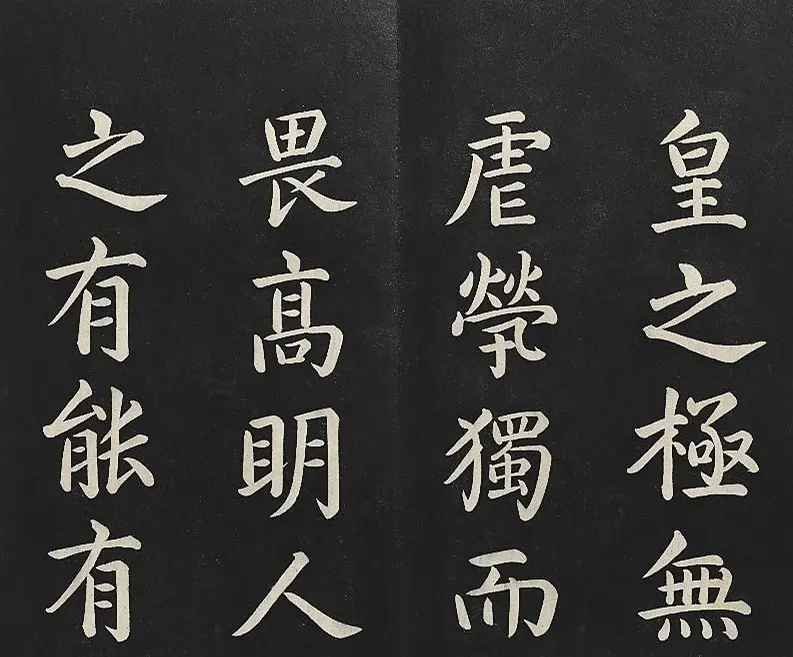 皇之極無
虐煢獨而
畏高明人
之有能有